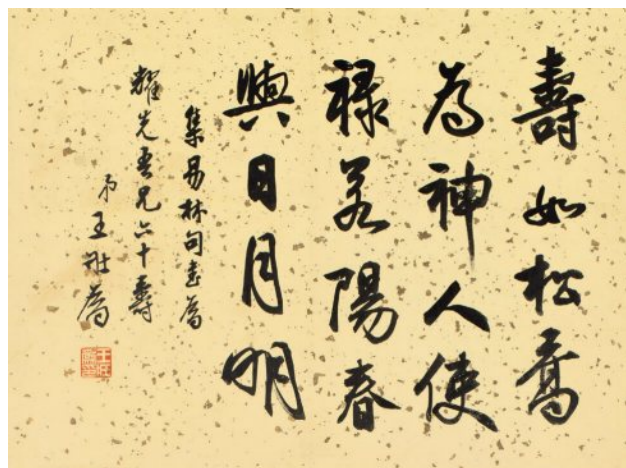 壽如松喬
為神人使
祿若陽春
與日月明
集易林句書為
耀先吾兄六十壽
弟王壯為